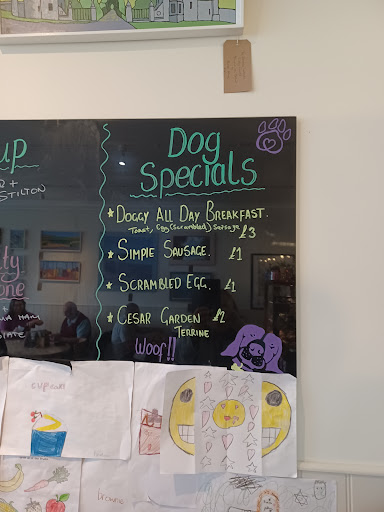 up
STILTON
Dog
Specials
★ DOGGY ALL DAY BREAKFAST.
Toast, Egg (Scrambled) Sausage
£3
★ SIMPLE SAUSAGE. £1
★ SCRAMBLED EGG. £1
★ CESAR GARDEN £2
TERRINE
Woof!!
ty
one
HAM
cupcake
brownie